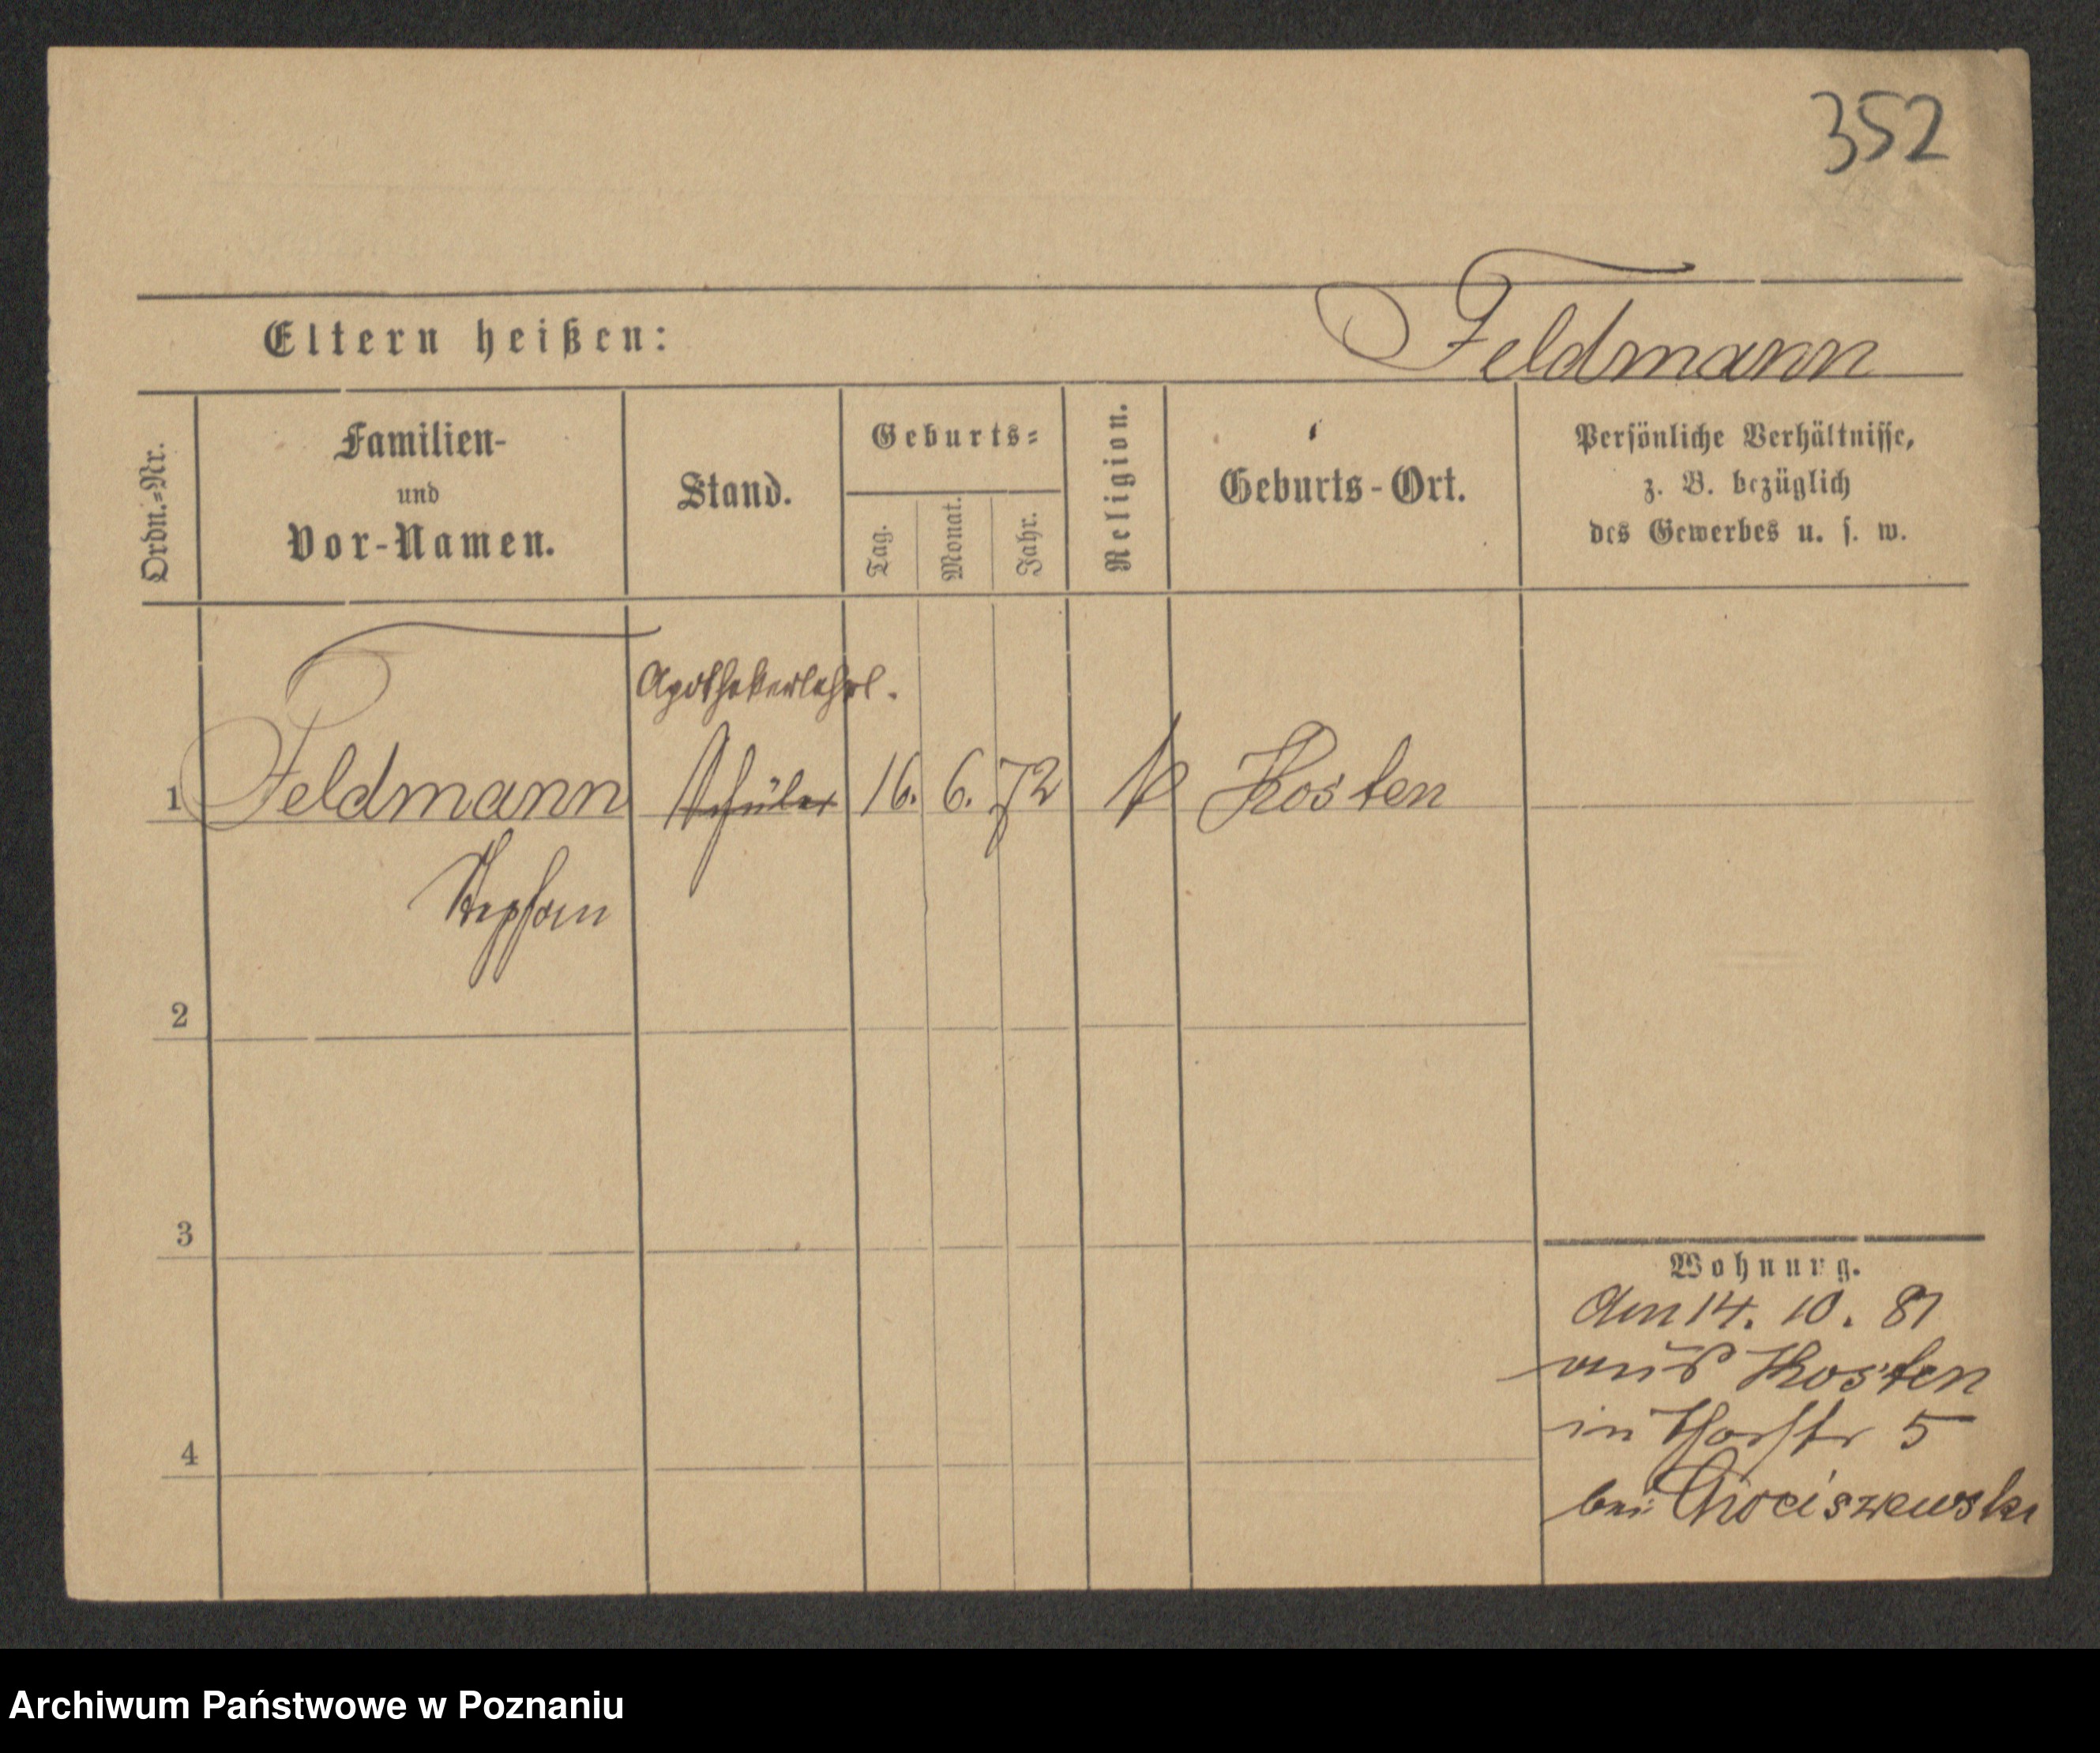 352
Eltern heißen:
Feldmann
Ordn.-Nr.
Familien-
und
Vor-Namen.
Stand.
Geburts-
Tag.
Monat.
Jahr.
Religion.
Geburts-Ort.
Persönliche Verhältnisse,
z. B. bezüglich
des Gewerbes u. s. w.
Apothekerlehrl.
1 Feldmann Schüler 16. 6. 72 Kosten
Stephan
2
3
4
Wohnung.
Am 14. 10. 87
aus Kosten
in 5
bei
Archiwum Państwowe w Poznaniu